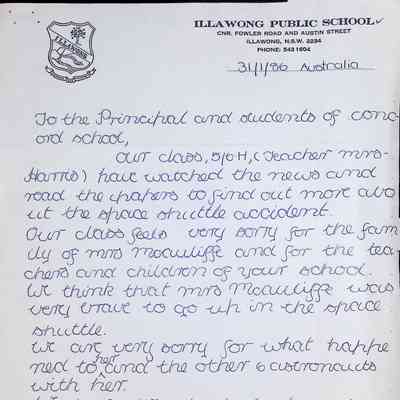 ILLAWONG
ILLAWONG PUBLIC SCHOOL
CNR. FOWLER ROAD AND AUSTIN STREET
ILLAWONG, N.S.W. 2234
PHONE: 543 1604
31/1/86 Australia
To the Principal and students of conc-
ord school,
Our class, 5/6H, (Teacher mrs-
Harris) have watched the news and
read the papers to find out more abo
ut the space shuttle accident.
Our class feels very sorry for the fam
ily of mrs Mcauliffe and for the tea-
chers and children of your school.
We think that mrs Mcauliffe was
very brave to go up in the space
shuttle.
We are very sorry for what happe
ned to her and the other 6 astronauts
with her.